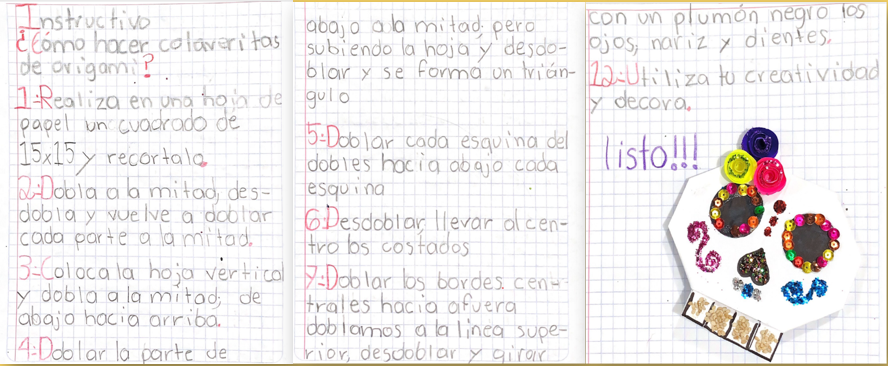 Instructivo
¿Cómo hacer calaveritas
de origami?
1:Realiza en una hoja de
papel un cuadrado de
15x15 y recortala.
2:Dobla a la mitad, des-
dobla y vuelve a doblar
cada parte a la mitad.
3:Coloca la hoja vertical
y dobla a la mitad; de
abajo hacia arriba.
4:Doblar la parte de
abajo a la mitad, pero
subiendo la hoja y desdo-
blar y se forma un trián-
gulo
5:Doblar cada esquina del
dobles hacia abajo cada
esquina
6:Desdoblar, llevar al cen-
tro los costados
7:Doblar los bordes cen-
trales hacia afuera
doblamos a la linea supe-
rior, desdoblar y girar
con un plumón negro los
ojos, nariz y dientes.
12:Utiliza tu creatividad
y decora.
listo!!!